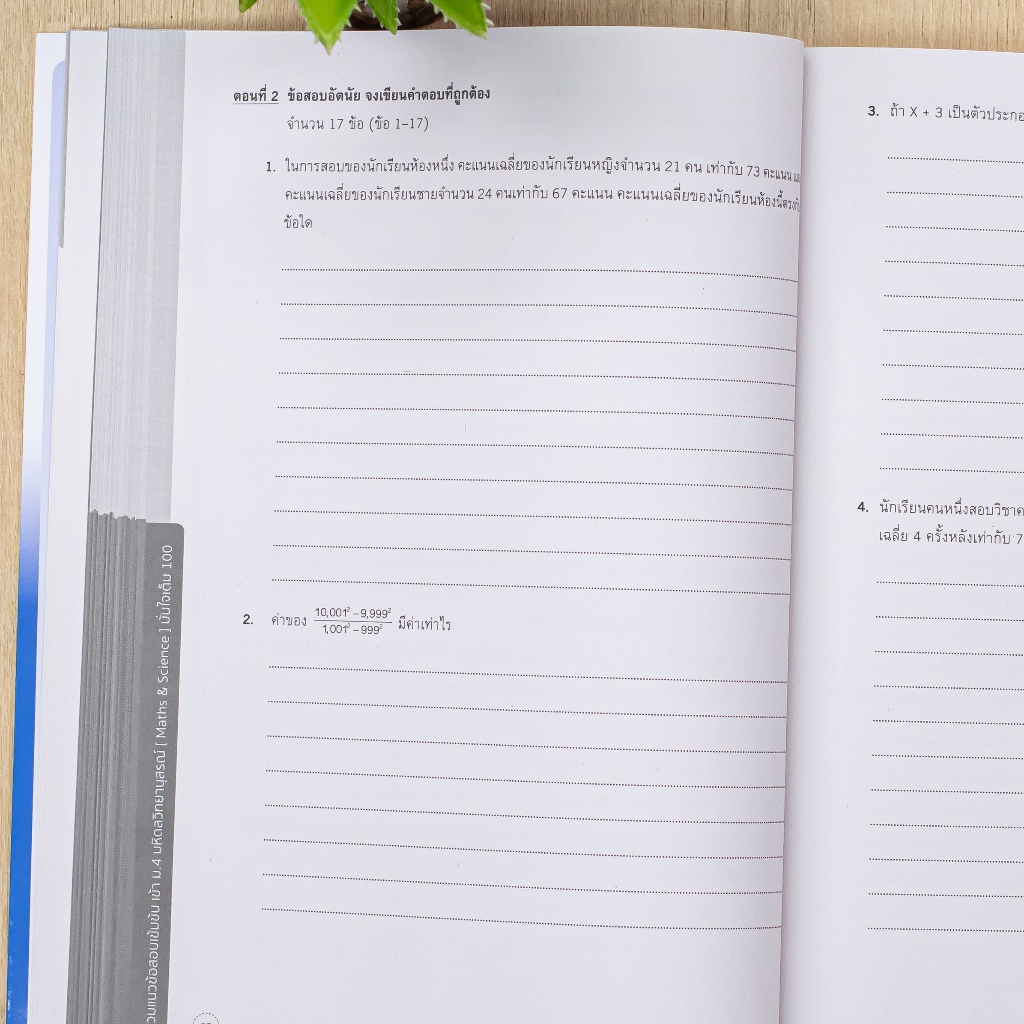 ตอนที่ 2 ข้อสอบอัตนัย จงเขียนคำตอบที่ถูกต้อง
จำนวน 17 ข้อ (ข้อ 1-17)
1. ในการสอบของนักเรียนห้องหนึ่ง คะแนนเฉลี่ยของนักเรียนหญิงจำนวน 21 คน เท่ากับ 73 คะแนน
คะแนนเฉลี่ยของนักเรียนชายจำนวน 24 คนเท่ากับ 67 คะแนน คะแนนเฉลี่ยของนักเรียนห้องนี้ตรงกับ
ข้อใด
2. ค่าของ (10,001² – 9,999²)/(1,001² – 999²) มีค่าเท่าไร
3. ถ้า X + 3 เป็นตัวประกอ
4. นักเรียนคนหนึ่งสอบวิชาค
เฉลี่ย 4 ครั้งหลังเท่ากับ 7
แนวข้อสอบเข้มข้น เข้า ม.4 มหิดลวิทยานุสรณ์ [ Maths & Science ] มั่นใจเต็ม 100